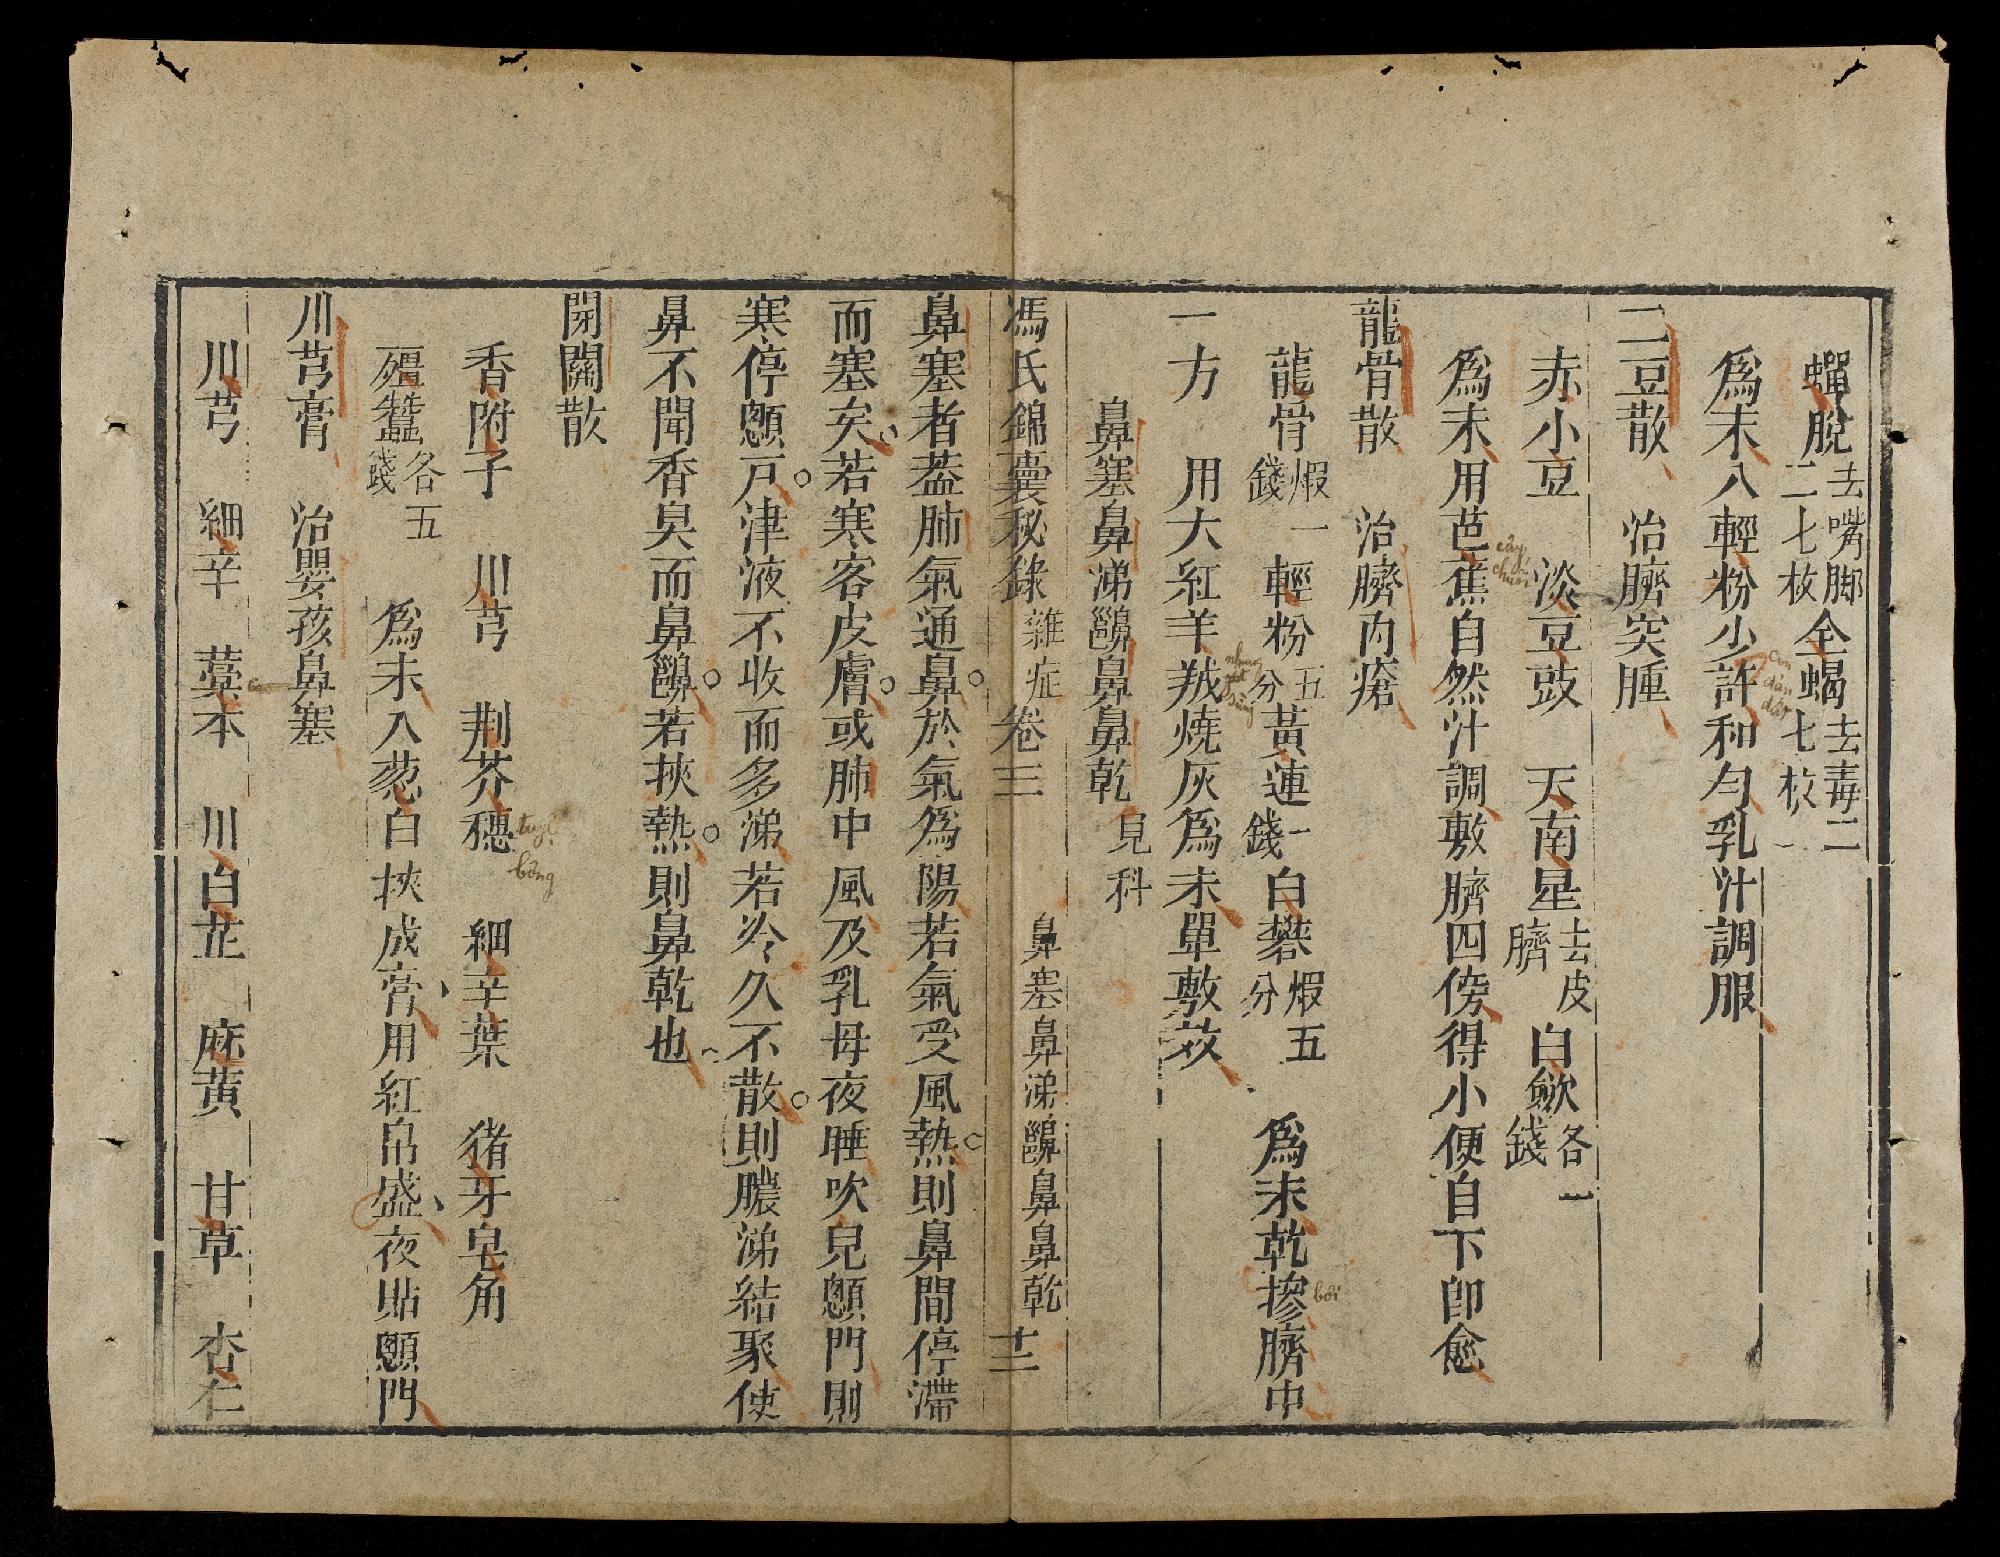 蟬脫去嘴脚二七枚全蝎去毒二七枚
為末入輕粉少許和勻乳汁調服
二豆散　治臍突腫
赤小豆　淡豆豉　天南星去皮臍　白歛各一錢
為末用芭蕉自然汁調敷臍四傍得小便自下即愈
龍骨散　治臍內瘡
龍骨煆一錢輕粉五分黃連一錢白礬煆五分　為末乾摻臍中
一方　用大紅羊羢燒灰為末單敷效
鼻塞鼻涕鼻齆鼻鼻乾兒科
馮氏錦囊秘錄雜症卷三　鼻塞鼻涕齆鼻鼻乾　十二
鼻塞者葢肺氣通鼻於氣為陽若氣受風熱則鼻間停滯
而塞矣若寒客皮膚或肺中風及乳母夜睡吹兒顖門則
寒停顖戶津液不收而多涕若冷久不散則膿涕結聚使
鼻不聞香臭而鼻齆若挾熱則鼻乾也
開關散
香附子　川芎　荆芥穗　細辛葉　猪牙皂角
殭蠶各五錢　為末入葱白挾成膏用紅帛盛夜貼顖門
川芎膏　治嬰孩鼻塞
川芎　細辛　藁本　川白芷　麻黃　甘草　杏仁
cây chuối
con đàn đất
nhung
bôi
bông